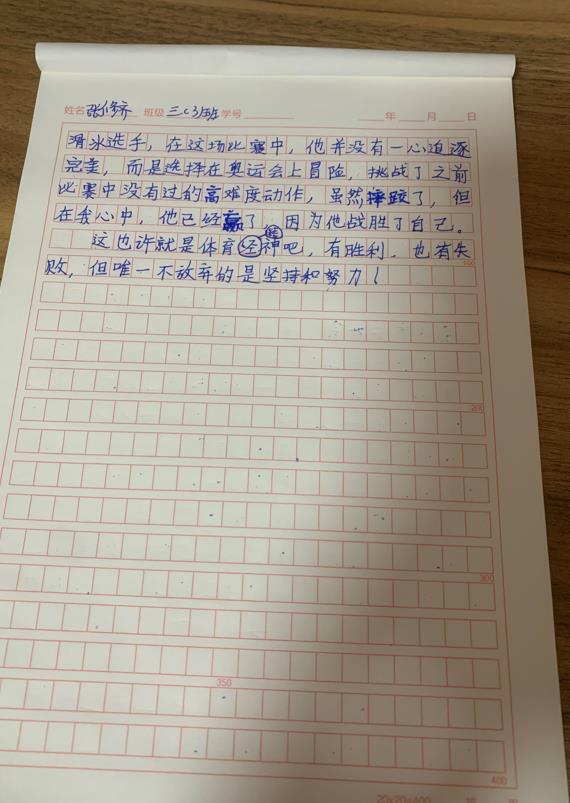 姓名 张修齐 班级 三(3)班 学号 年 月 日
滑冰选手，在这场比赛中，他并没有一心追逐
完美，而是选择在奥运会上冒险，挑战了之前
比赛中没有过的高难度动作，虽然摔跤了，但
在我心中，他已经赢了 因为他战胜了自己。
这也许就是体育精神吧，有胜利，也有失
100
败，但唯一不放弃的是坚持和努力！
200
300
350
400
20x20=400